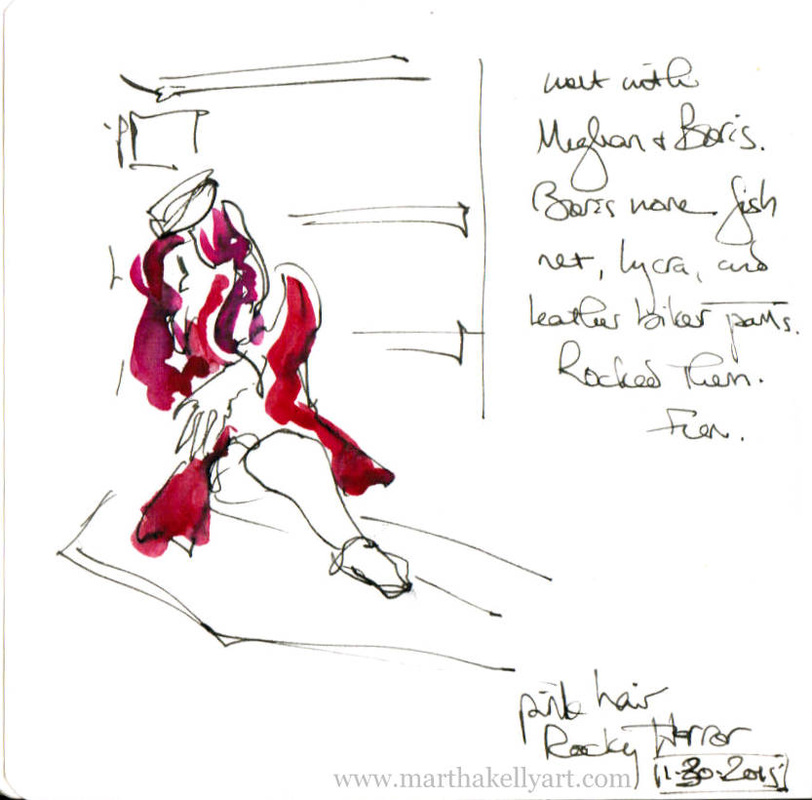 went with
Meghan + Boris.
Boris wore fish
net, lycra, and
leather biker pants.
Rocked them.
Fun.
pink hair
Rocky Horror
www.marthakellyart.com